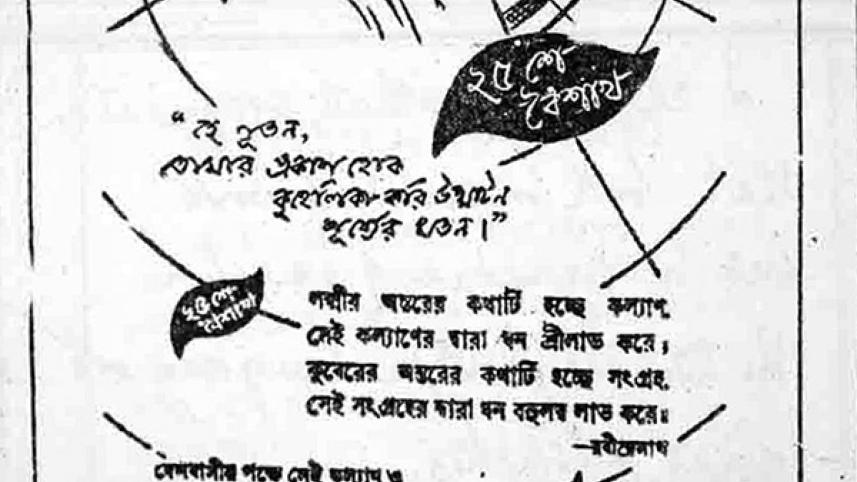 ২৫ শে
বৈশাখ
“হে নূতন,
তোমার প্রকাশ হোক
কুহেলিকা করি উদ্ঘাটন
সূর্য্যের মতন।”
২৫ শে
বৈশাখ
লক্ষ্মীর অন্তরের কথাটি হচ্ছে কল্যাণ,
সেই কল্যাণের দ্বারা ধন শ্রীলাভ করে;
কুবেরের অন্তরের কথাটি হচ্ছে সংগ্রহ,
সেই সংগ্রহের দ্বারা ধন বহুলত্ব লাভ করে॥
—রবীন্দ্রনাথ
পক্ষে সেই কল্যাণ ও